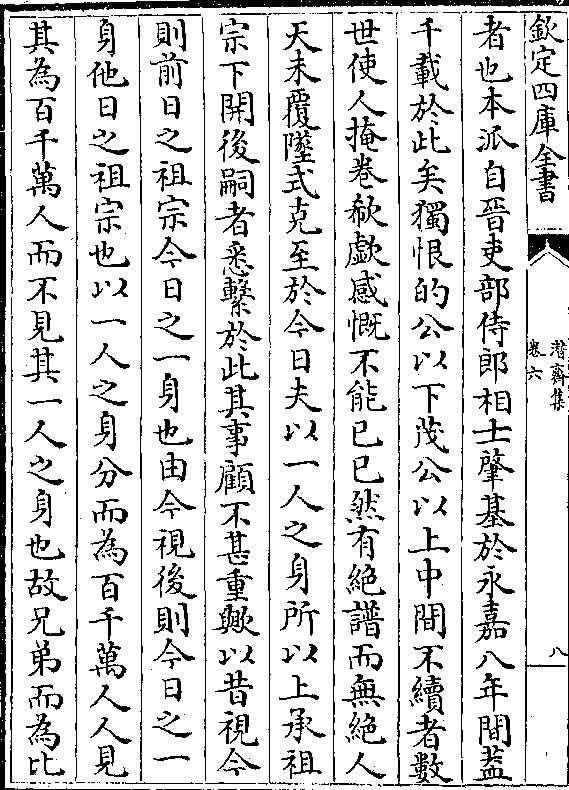 欽定四庫全書
潛齋集
卷六
八
者也本派自晉吏部侍郎相士肇基於永嘉八年間葢
千載於此矣獨恨的公以下茂公以上中間不續者數
世使人掩卷欷歔感慨不能已已然有絶譜而無絶人
天未覆墜式克至於今日夫以一人之身所以上承祖
宗下開後嗣者悉繫於此其事顧不甚重歟以昔視今
則前日之祖宗今日之一身也由今視後則今日之一
身他日之祖宗也以一人之身分而為百千萬人人見
其為百千萬人而不見其一人之身也故兄弟而為比